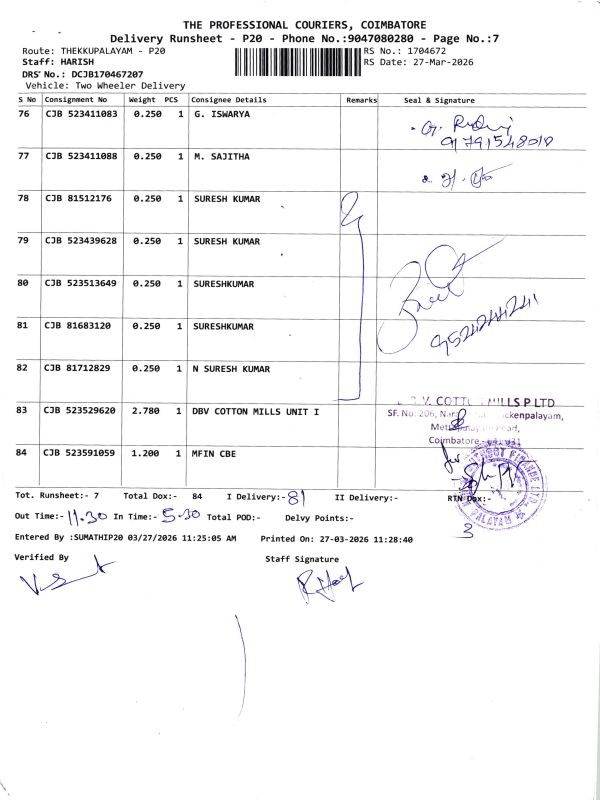 THE PROFESSIONAL COURIERS, COIMBATORE
Delivery Runsheet - P20 - Phone No.:9047080280 - Page No.:7
Route: THEKKUPALAYAM - P20
RS No.: 1704672
Staff: HARISH
RS Date: 27-Mar-2026
DRS No.: DCJB170467207
Vehicle: Two Wheeler Delivery
S No Consignment No Weight PCS Consignee Details Remarks Seal & Signature
76 CJB 523411083 0.250 1 G. ISWARYA
9791548018
77 CJB 523411088 0.250 1 M. SAJITHA
78 CJB 81512176 0.250 1 SURESH KUMAR
79 CJB 523439628 0.250 1 SURESH KUMAR
80 CJB 523513649 0.250 1 SURESHKUMAR
81 CJB 81683120 0.250 1 SURESHKUMAR
9524244241
82 CJB 81712829 0.250 1 N SURESH KUMAR
83 CJB 523529620 2.780 1 DBV COTTON MILLS UNIT I
MILLS P LTD
SF. No: 206,
Coimbatore
84 CJB 523591059 1.200 1 MFIN CBE
Tot. Runsheet:- 7 Total Dox:- 84 I Delivery:- 81 II Delivery:- RTN Dox:-
3
Out Time:- 11.30 In Time:- 5.30 Total POD:- Delvy Points:-
Entered By :SUMATHIP20 03/27/2026 11:25:05 AM Printed On: 27-03-2026 11:28:40
Verified By Staff Signature